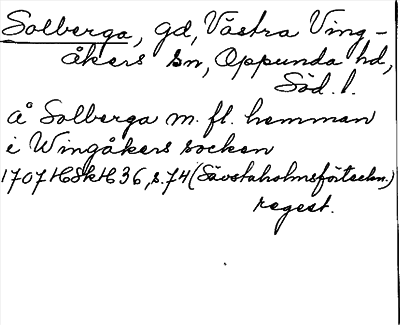 Solberga, gd, Västra Ving-
åkers sn, Oppunda hd,
Söd. l.
å Solberga m. fl. hemman
i Wingåkers socken
1707 HSkH 36, s. 74 (Sävstaholmsförteckn.)
regest.